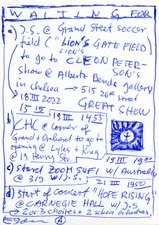 WAITING FOR
a) J.S. @ Grand Street soccer
field ("LION'S GATE FIELD")
LION'S
to go to CLEON PETER-
SON'S
show @ Alberto Benda gallery
in chelsea → 515 26th street
18 III 2022 GREAT SHOW
15 - 15
19 III 14 53
b) CHC @ corner of
Grand + to go to
opening @ Lyles + King
@ 19 Henry Str. 19 III
c) stars! ZOOM SUFI w/ Australia
@ 319 W/J.S. 21 III 1950
d) start of concert "HOPE RISING"
@ CARNEGIE HALL w/ J.S.
→ 2 or 3 choirs + 2 school orchestras